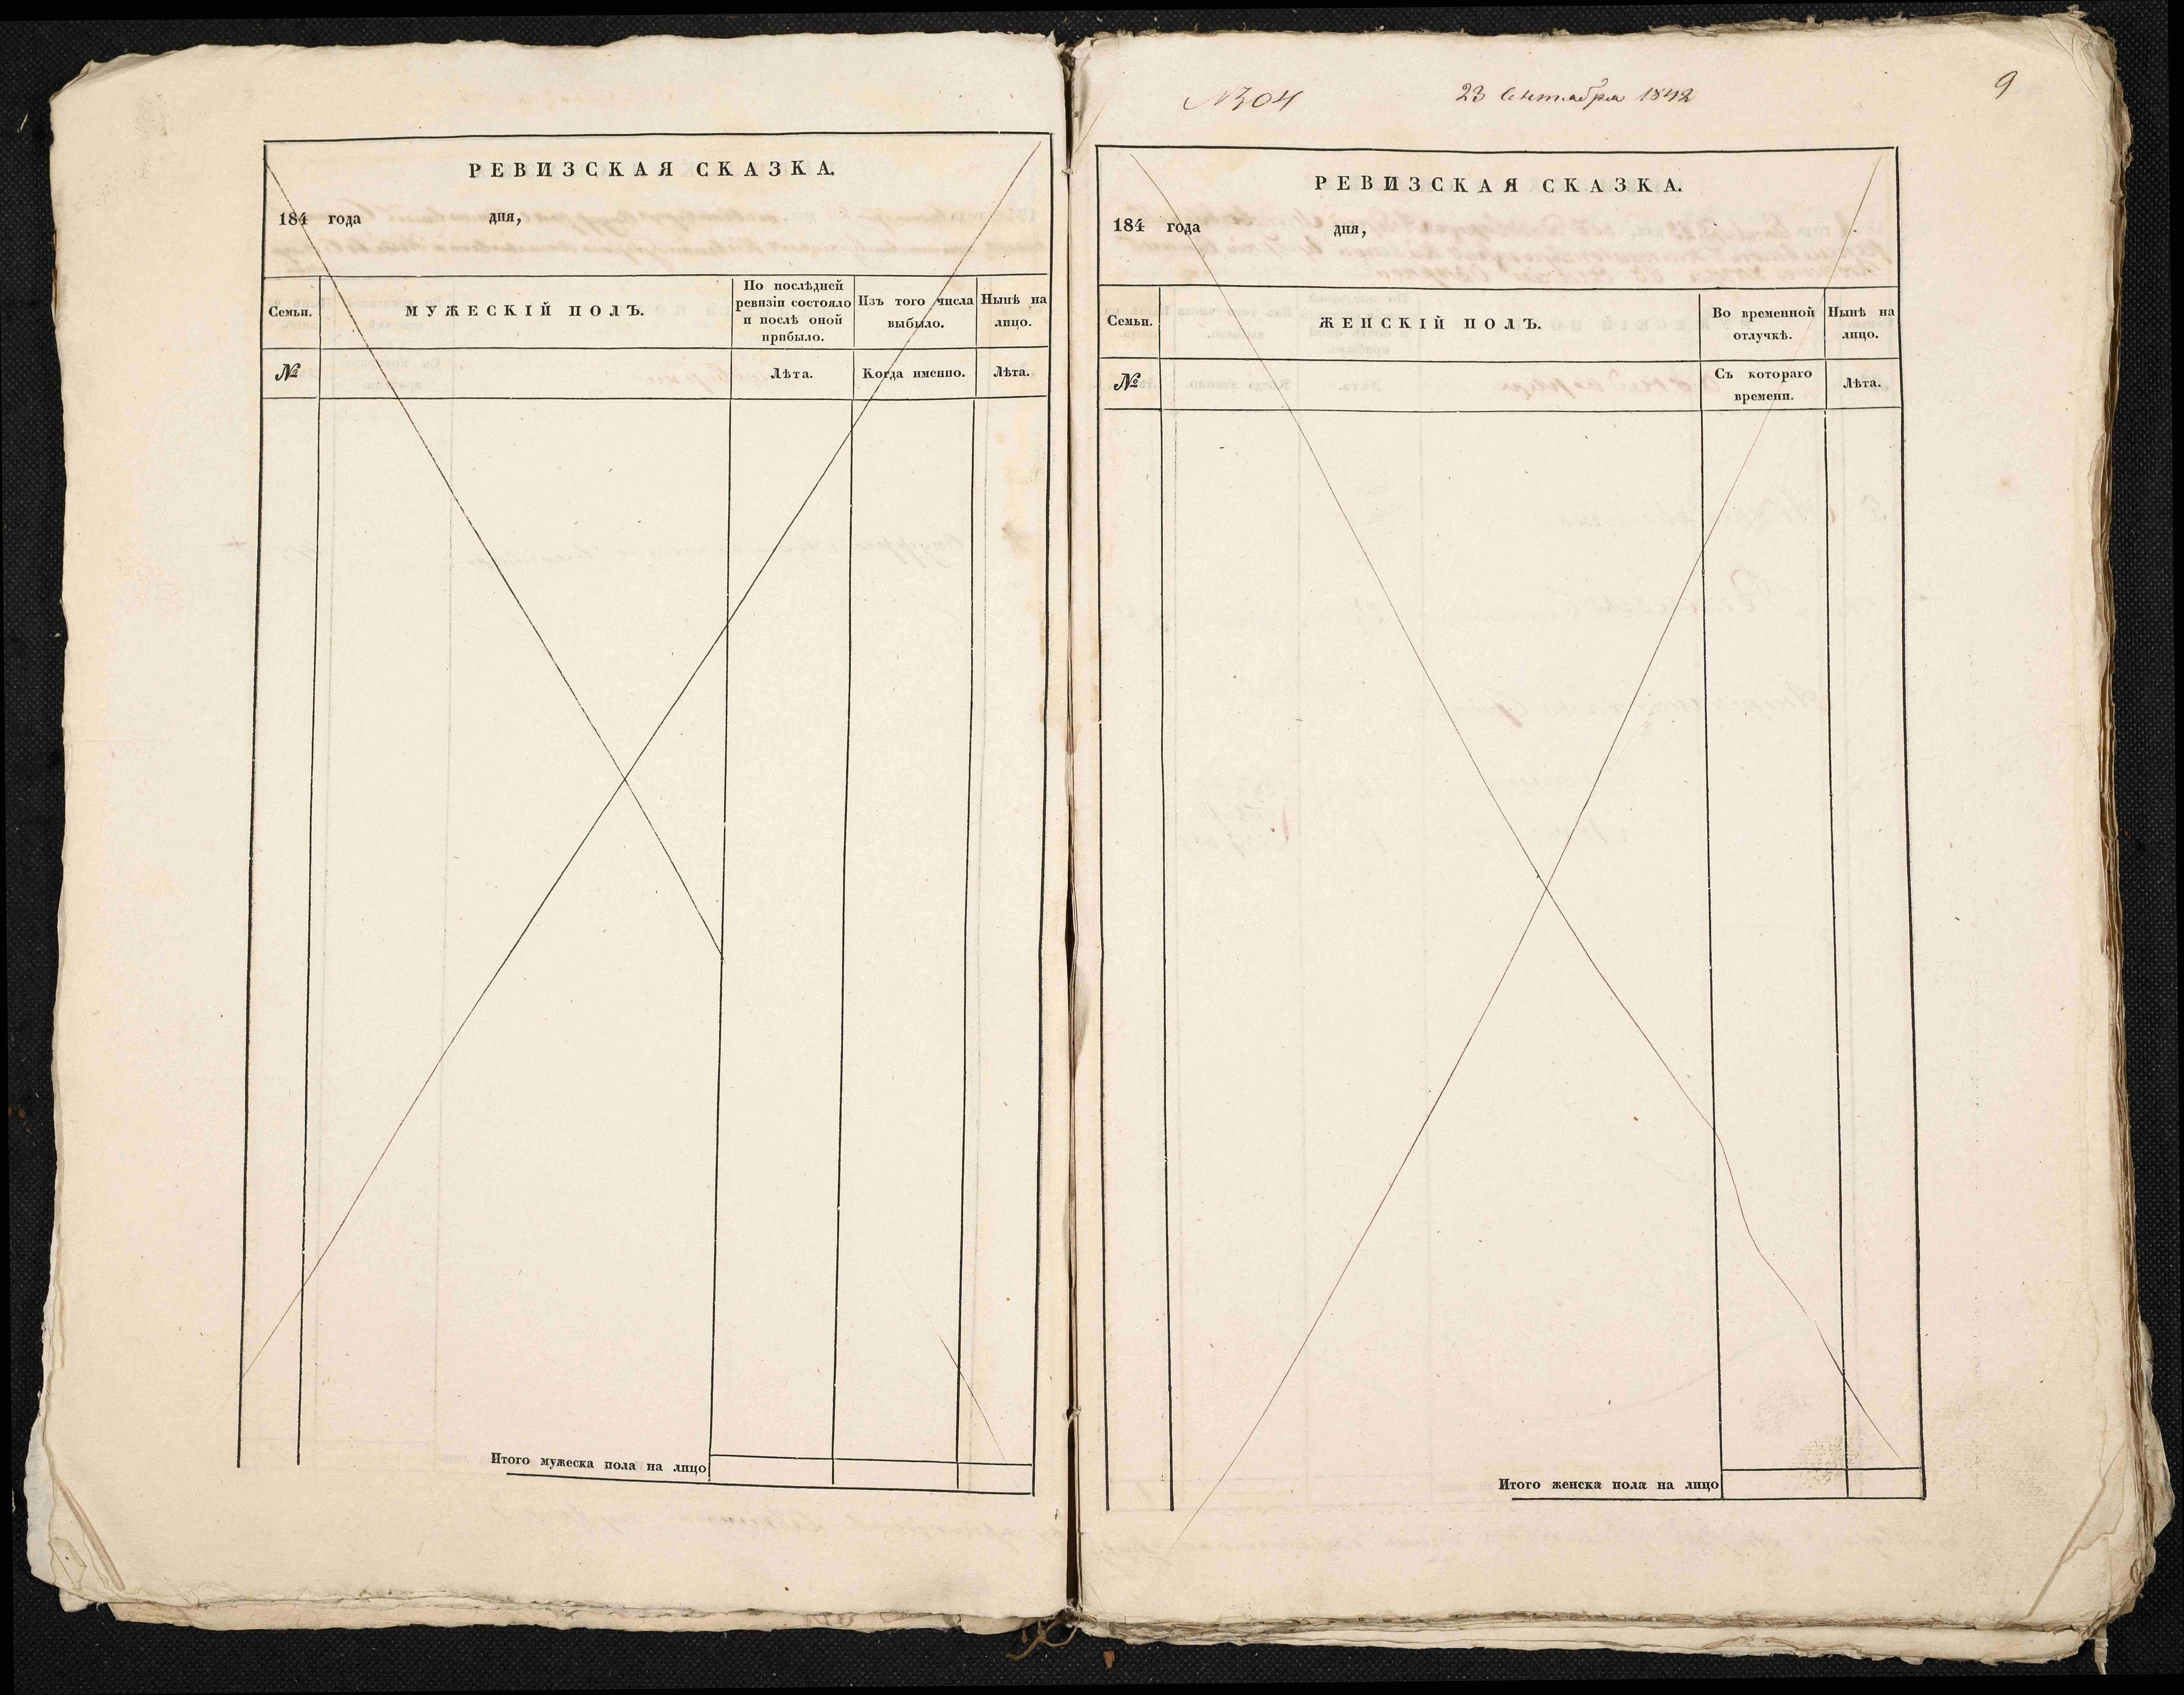 РЕВИЗСКАЯ СКАЗКА.
184 года дня,
Семьи.
МУЖЕСКІЙ ПОЛЪ.
По послѣдней
ревизіи состояло
и послѣ оной
прибыло.
Изъ того числа
выбыло.
Нынѣ на
лицо.
№
Лѣта.
Когда именно.
Лѣта.
Итого мужеска пола на лицо
№304 23 Сентября 1842 9
РЕВИЗСКАЯ СКАЗКА.
184 года дня,
Семьи.
ЖЕНСКІЙ ПОЛЪ.
Во временной
отлучкѣ.
Нынѣ на
лицо.
№
Съ котораго
времени.
Лѣта.
Итого женска пола на лицо